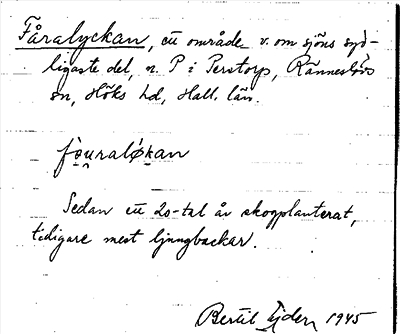 Fåralyckan, ett område v. om sjöns syd-
ligaste del, n. P i Perstorp, Ränneslövs
sn, Höks hd, Hall. län.
fòu̯raló̱kan
Sedan ett 20-tal år skogplanterat,
tidigare mest ljungbackar.
Bertil Ejder 1945